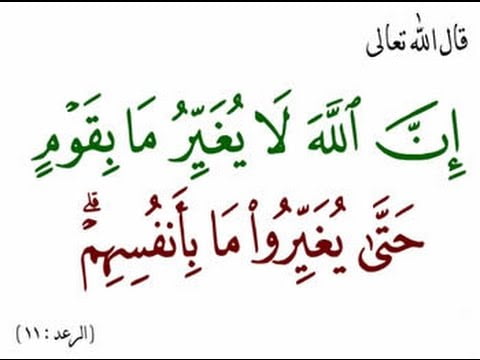 قال الله تعالى
إِنَّ ٱللَّهَ لَا يُغَيِّرُ مَا بِقَوْمٍ
حَتَّىٰ يُغَيِّرُوا۟ مَا بِأَنفُسِهِمْ ۗ
(الرعد : ١١)